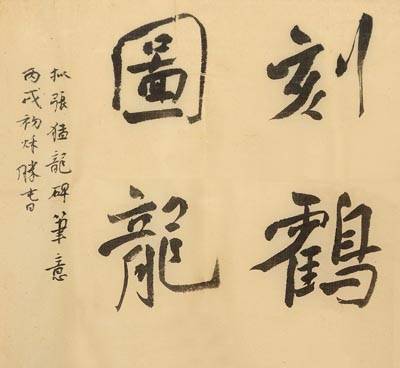 刻鶴
圖龍
拟張猛龍碑筆意
丙戌初秋勝書